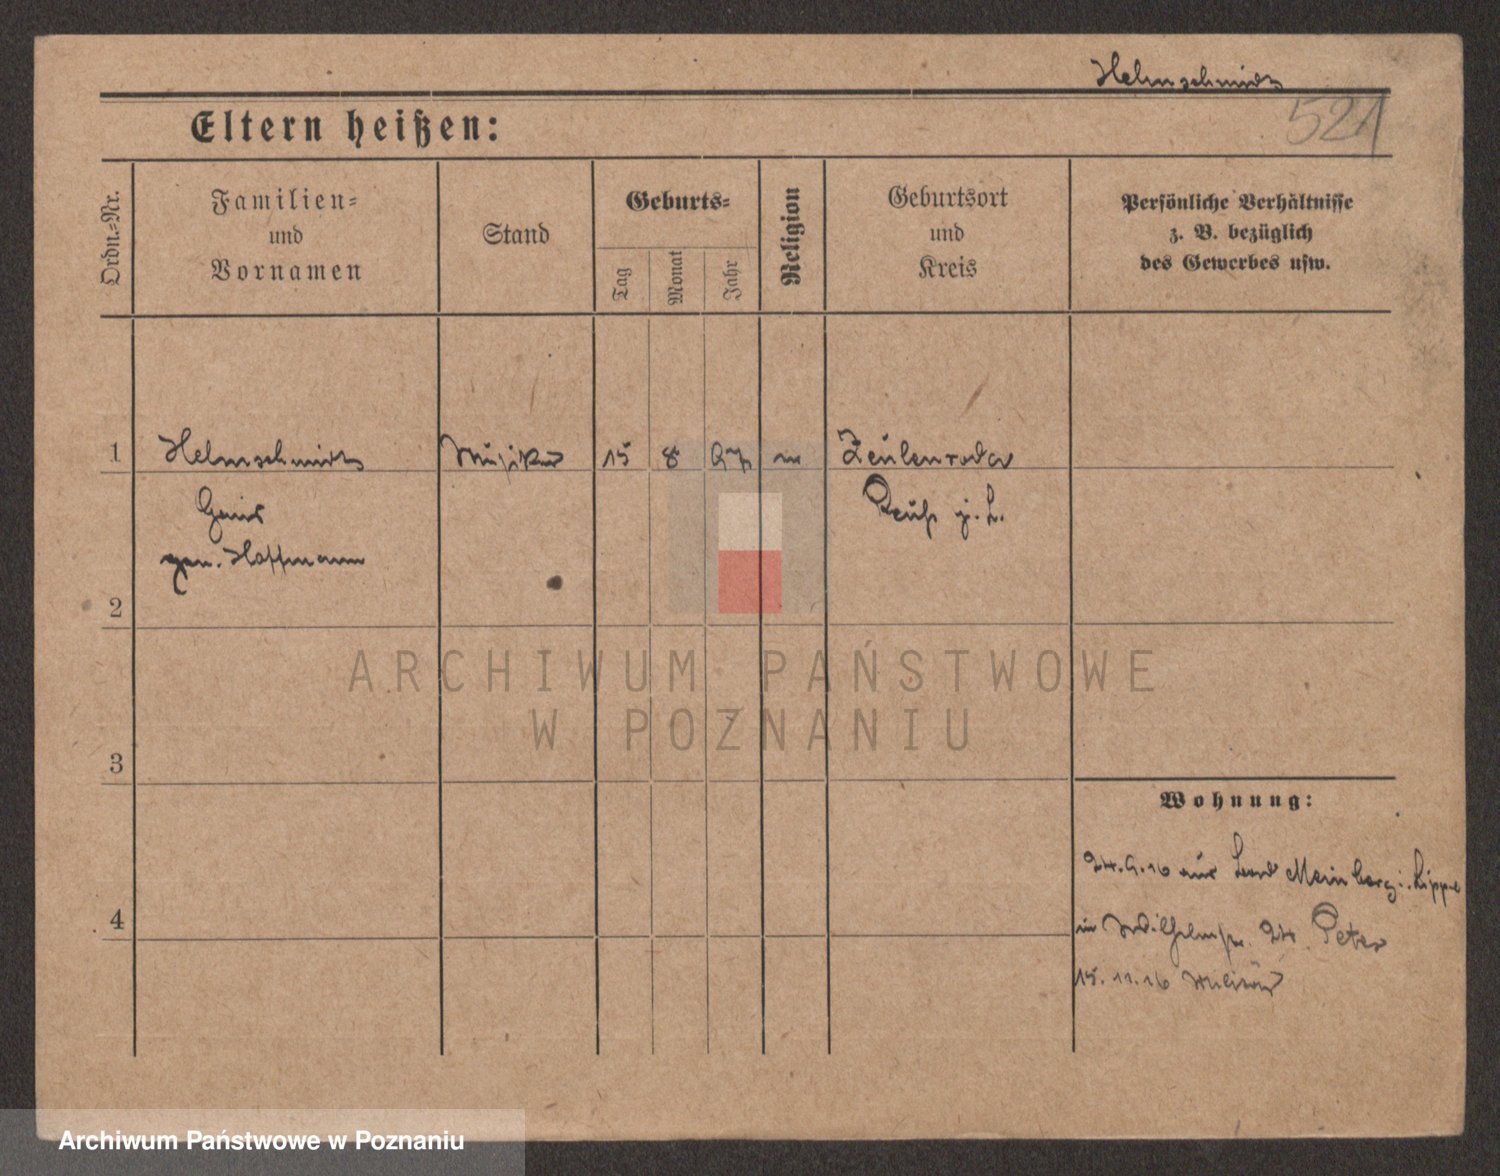 Helmschmidt
521
Eltern heißen:
Ordn.-Nr.
Familien-
und
Vornamen
Stand
Geburts-
Tag
Monat
Jahr
Religion
Geburtsort
und
Kreis
Persönliche Verhältnisse
z. B. bezüglich
des Gewerbes usw.
1 Helmschmidt Musiker 15 8 97 Zeulenroda
Hans Reuß j. L.
gen. Hoffmann
2
3
4
Wohnung:
24.9.16 aus Meinberg i. Lippe
in Wilhelmstr. 24 Peter
15.11.16 Militär
ARCHIWUM PAŃSTWOWE
W POZNANIU
Archiwum Państwowe w Poznaniu